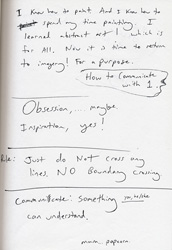 I know how to paint. And I know how to
spend my time painting. I
learned abstract art! which is
for All. Now it is time to return
to imagery! For a purpose.
How to Communicate
with 1.
Obsession,.... maybe
Inspiration, yes!
Rule: Just do Not cross any
lines. NO Boundary Crossing
Communicate: Something
can understand.
mmm.. popcorn